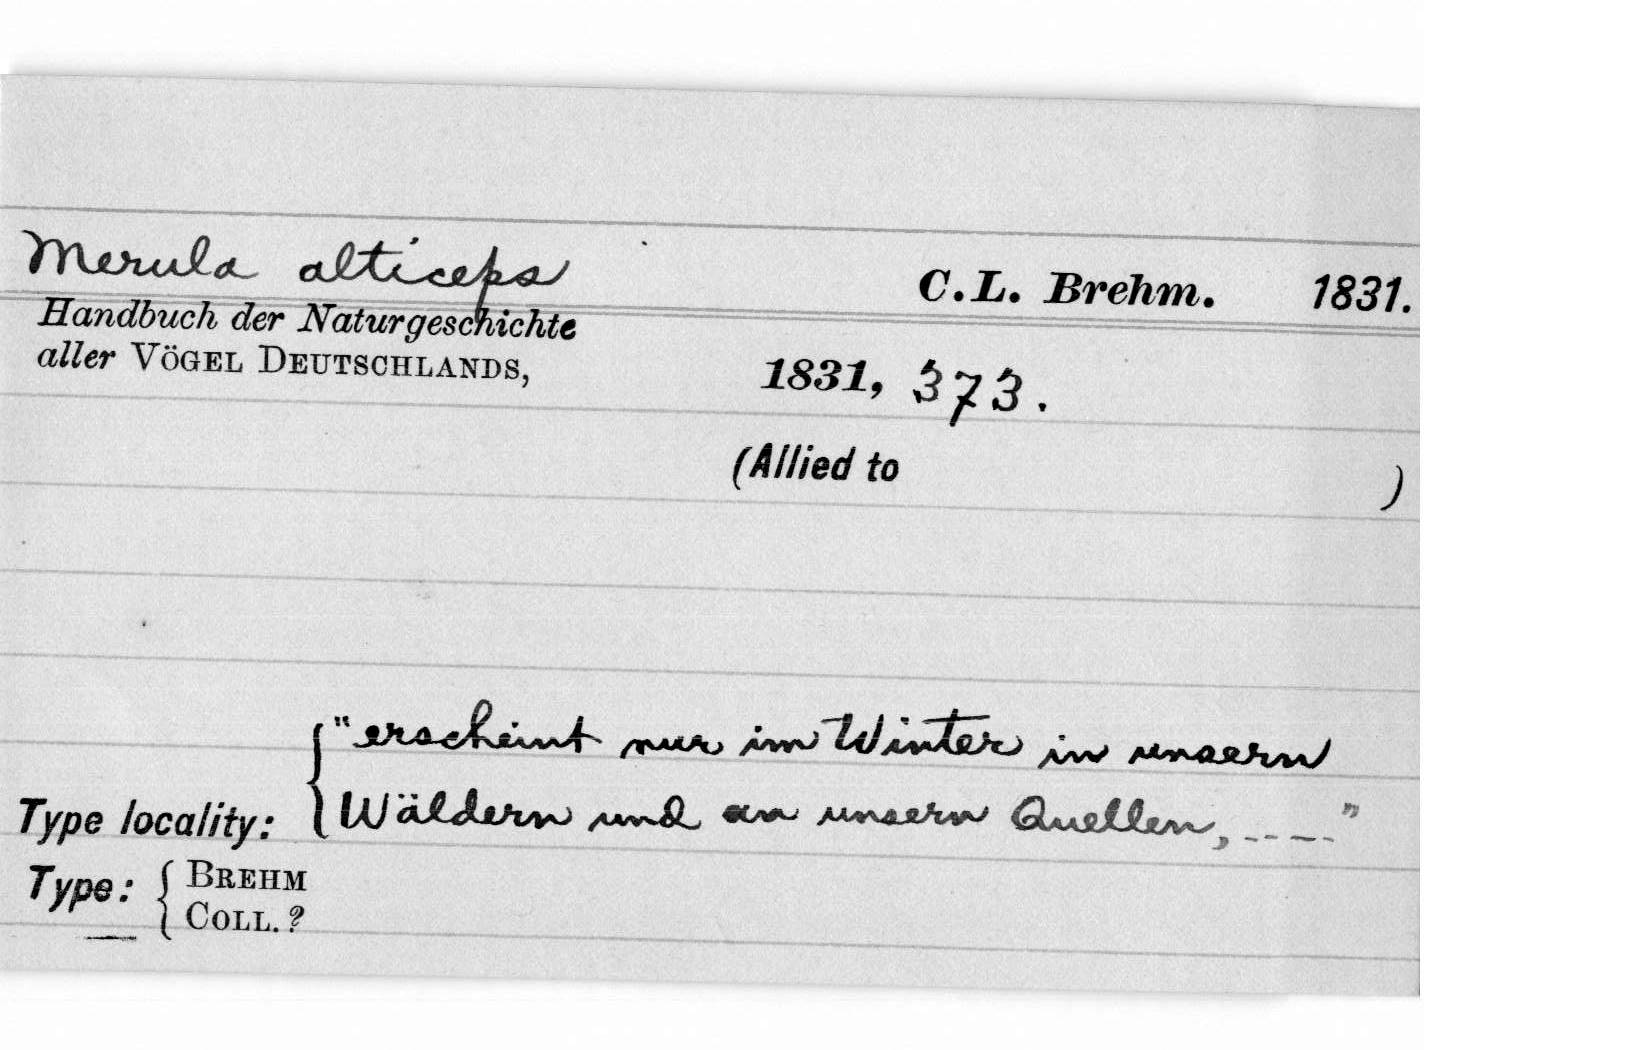 Merula alticeps C.L. Brehm. 1831.
Handbuch der Naturgeschichte
aller VÖGEL DEUTSCHLANDS, 1831, 373.
(Allied to )
"erscheint nur im Winter in unsern
Type locality: Wäldern und an unsern Quellen, ----"
Type: BREHM
COLL.?